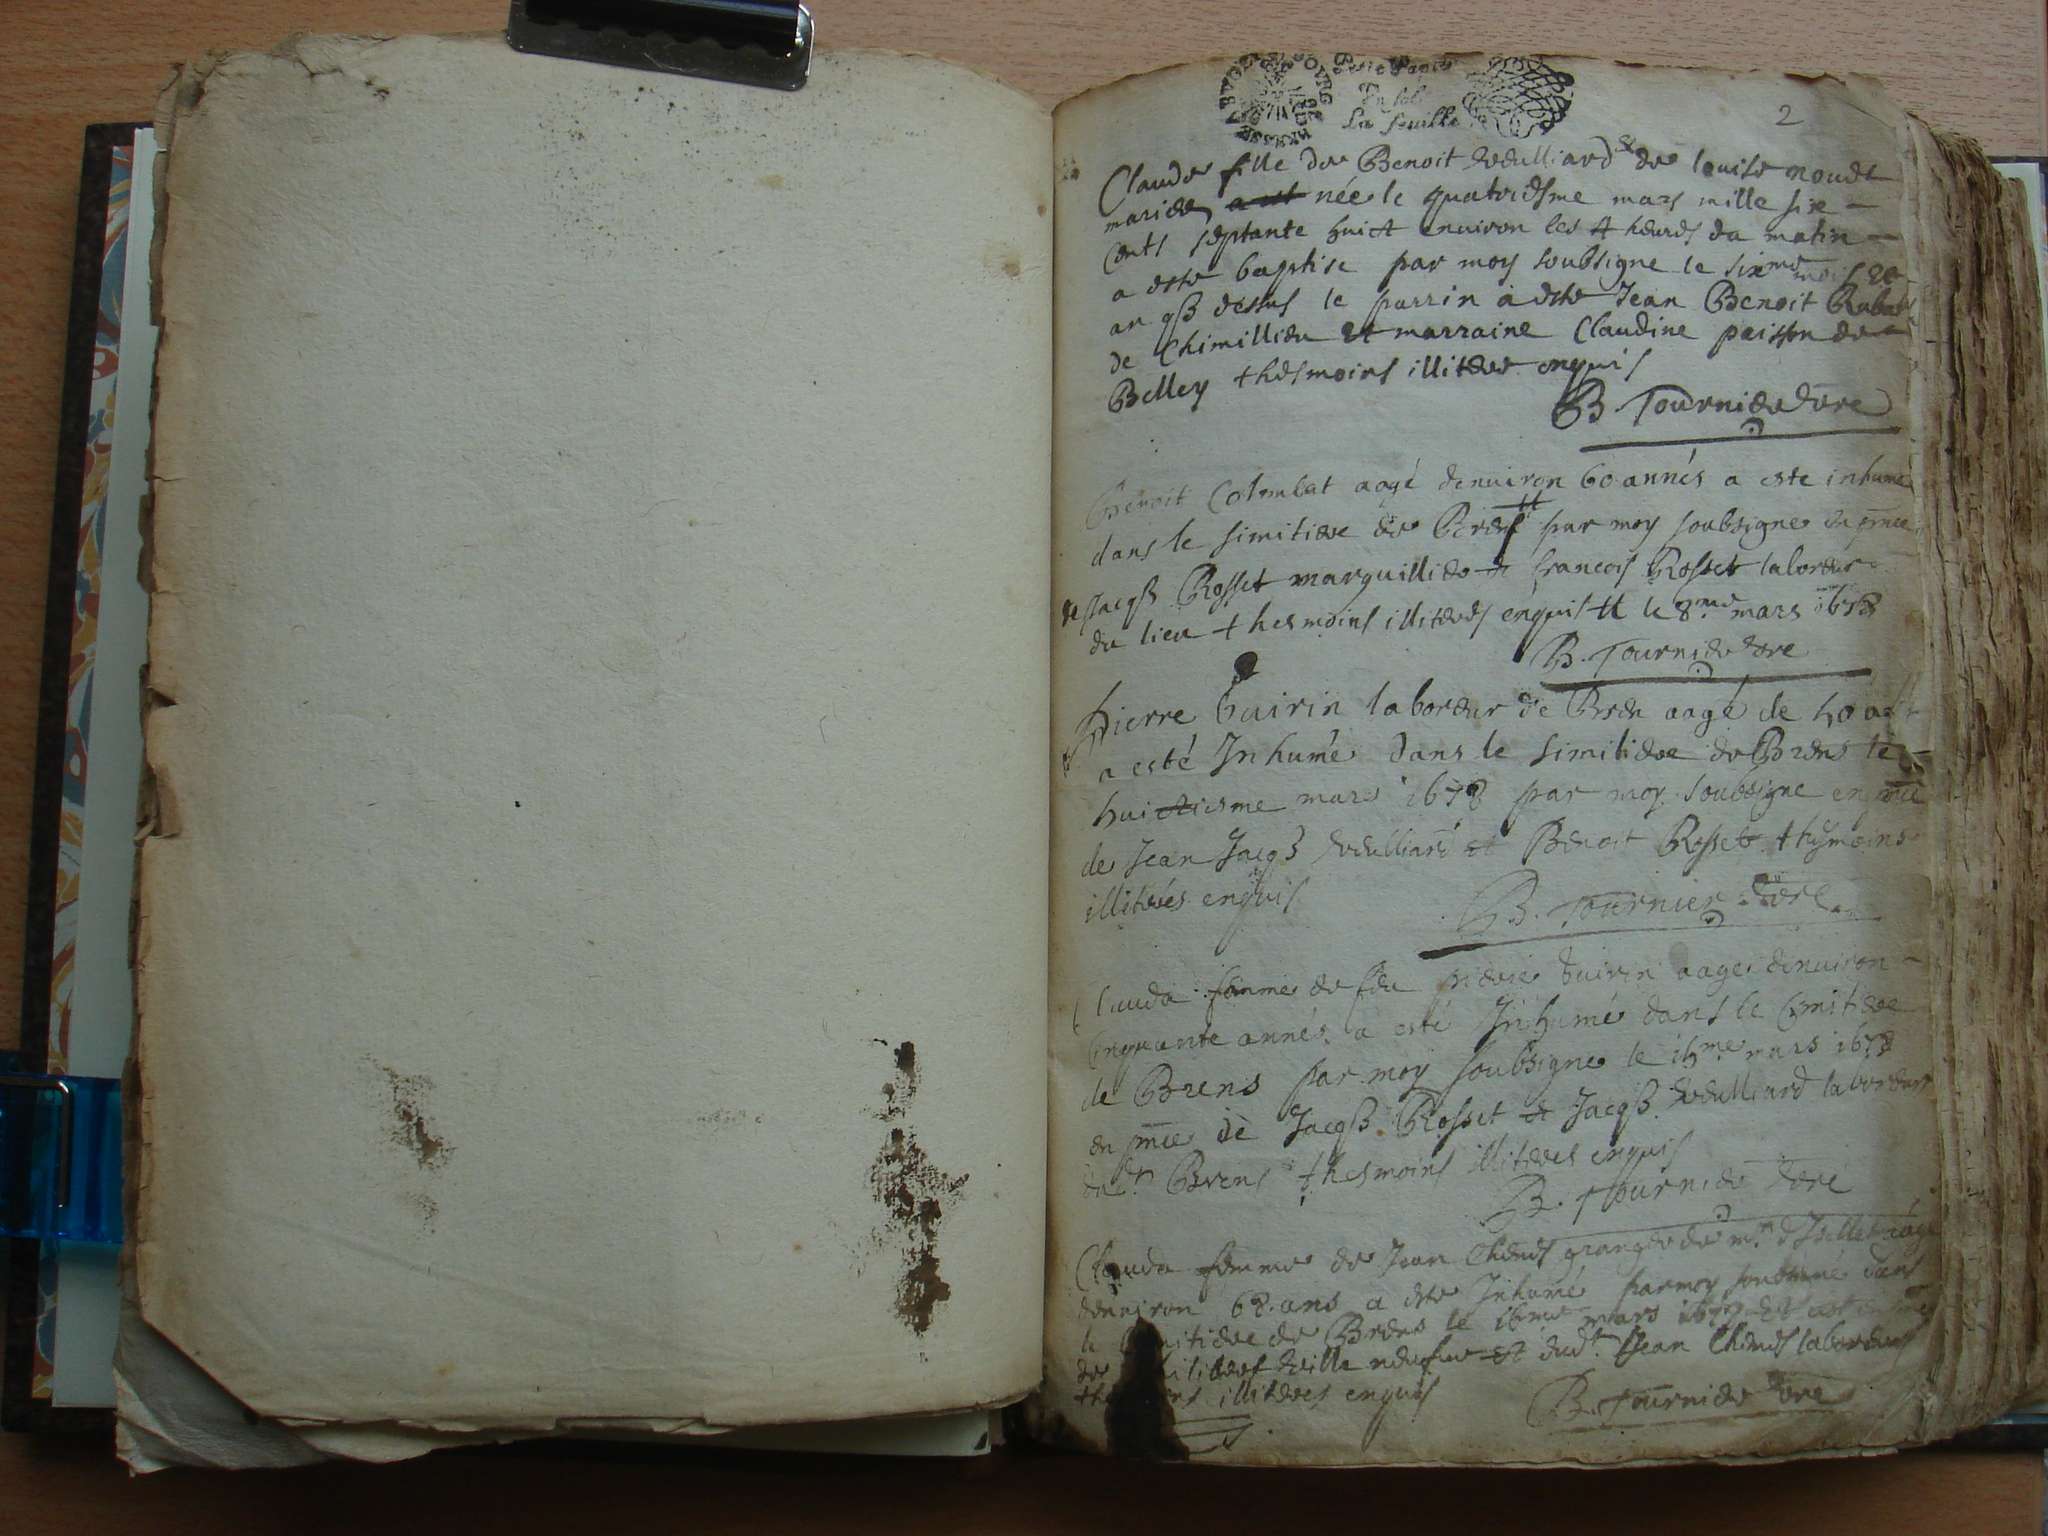 Petit Papier
Un sol
La feuille
2
Claude fille de Benoit Veulliard & de louise
mariés a est née le quatriesme mars mille six
Cents septante huict enuiron les 4 heures du matin
a este baptise par moy soubsigne le sixme mois &
an dessus le parrin a este Jean Benoit
de Chimillieu et marraine Claudine paisson de
Belley thesmoins illiteres enquis
B. Tournier vre
Benoit Colombat aagé denuiron 60 annés a este inhumé
dans le simitiere de Brens par moy soubsigne en pnce
de Jacqs Rosset marguillier et francois Rosset laboreur
du lieu thesmoins illiteres enquis le 8me mars 1678
B. Tournier vre
pierre Guirin laboreur de Bren aagé de
a esté Inhumé dans le simitiere de Brens le
huictiesme mars 1678 par moy soubsigne en pnce
de Jean Jacqs Veulliard et Benoit Rosset thesmoins
illiteres enquis
B. Tournier vre
Clauda femme de feu pierre Guirin aagee denuiron
Cinquante annés a esté Inhumé dans le Cimitiere
de Brens par moy soubsigne le 15me mars 1678
en pnce de Jacqs Rosset et Jacqs Veulliard laboreurs
dud. Brens thesmoins illiteres enquis
B. Tournier vre
Clauda femme de Jean granger de mr
denuiron 68 ans a este Inhumé par moy dans
le Cimitiere de Brens le 16me mars 1678
de et dudt. Jean laboreurs
illiteres enquis
B. Tournier vre